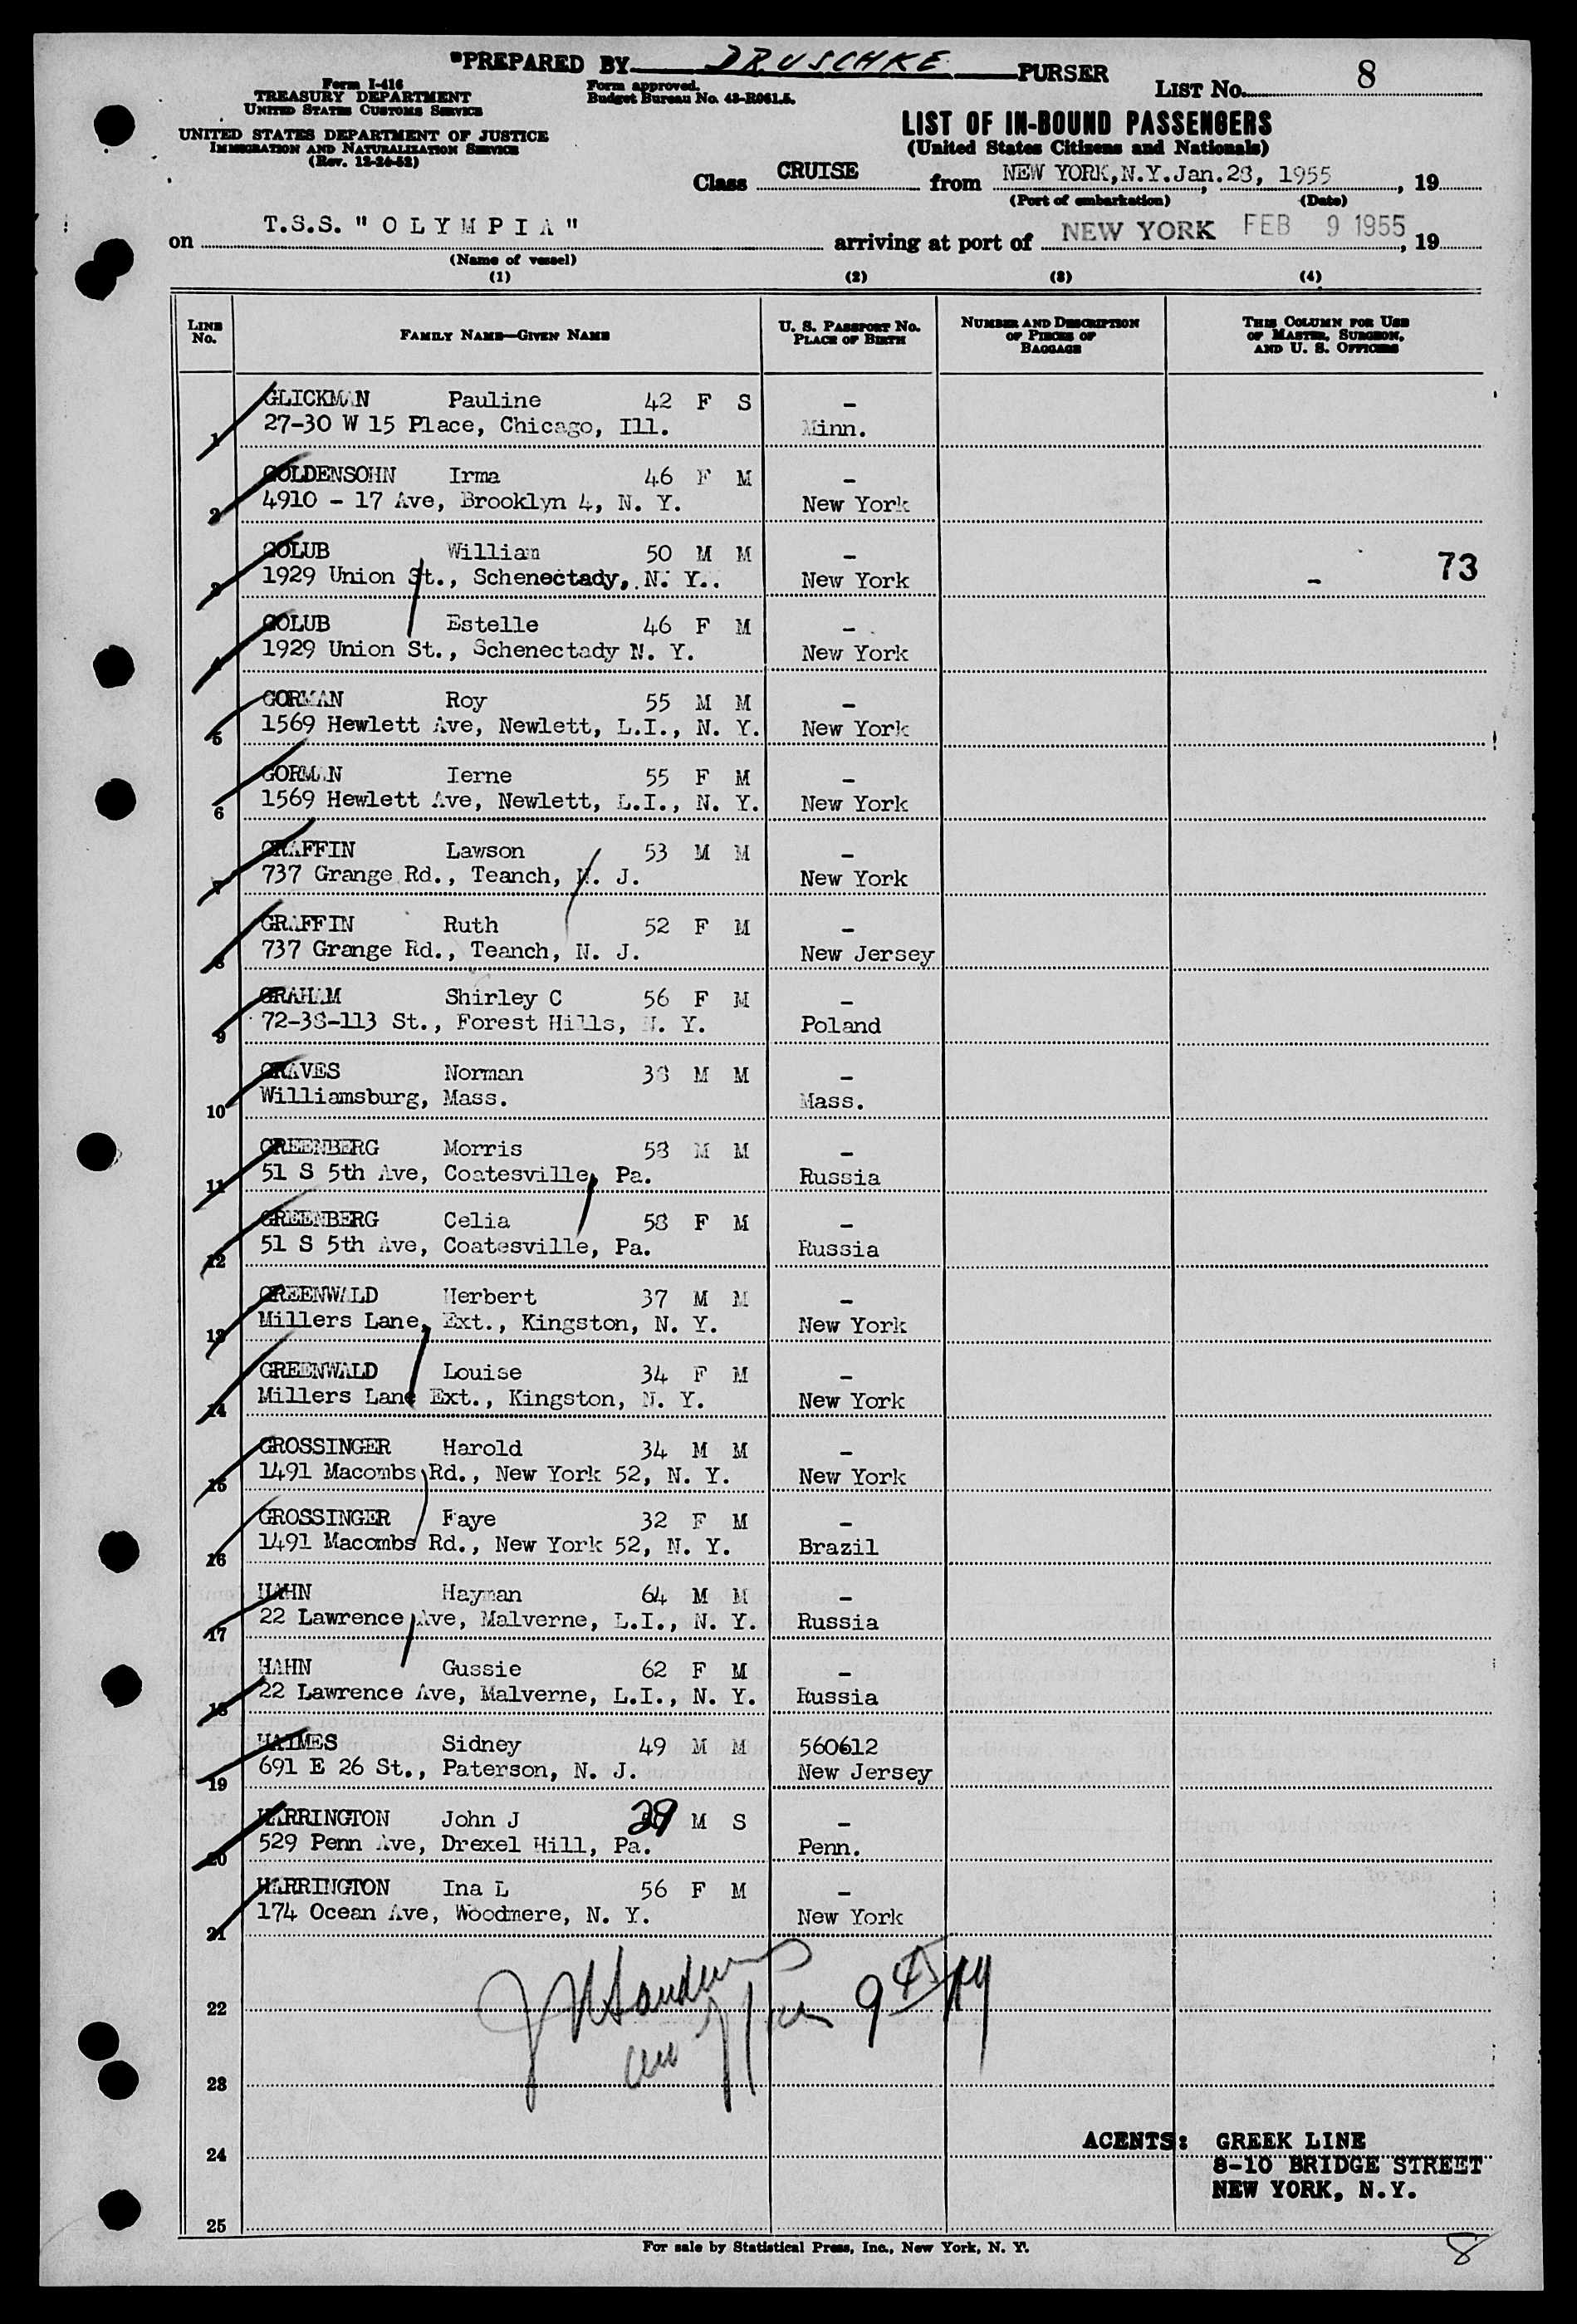 PREPARED BY DRUSCHKE PURSER
LIST No. 8
Form I-416
TREASURY DEPARTMENT
UNITED STATES CUSTOMS SERVICE
Form approved.
Budget Bureau No. 43-R061.5.
UNITED STATES DEPARTMENT OF JUSTICE
IMMIGRATION AND NATURALIZATION SERVICE
(Rev. 12-24-52)
LIST OF IN-BOUND PASSENGERS
(United States Citizens and Nationals)
Class CRUISE from NEW YORK, N.Y. Jan. 28, 1955, 19
(Port of embarkation) (Date)
on T.S.S. "OLYMPIA" arriving at port of NEW YORK FEB 9 1955, 19
(Name of vessel)
(1) (2) (3) (4)
LINE No. FAMILY NAME—GIVEN NAME U. S. PASSPORT No. PLACE OF BIRTH NUMBER AND DESCRIPTION OF PIECES OF BAGGAGE THIS COLUMN FOR USE OF MASTER, SURGEON, AND U. S. OFFICERS
GLICKMAN Pauline 42 F S –
1 27-30 W 15 Place, Chicago, Ill. Minn.
GOLDENSOHN Irma 46 F M –
2 4910 – 17 Ave, Brooklyn 4, N. Y. New York
GOLUB William 50 M M –
3 1929 Union St., Schenectady, N. Y.. New York – 73
GOLUB Estelle 46 F M –
4 1929 Union St., Schenectady N. Y. New York
GORMAN Roy 55 M M –
5 1569 Hewlett Ave, Newlett, L.I., N. Y. New York
GORMAN Ierne 55 F M –
6 1569 Hewlett Ave, Newlett, L.I., N. Y. New York
GRAFFIN Lawson 53 M M –
7 737 Grange Rd., Teanch, N. J. New York
GRAFFIN Ruth 52 F M –
8 737 Grange Rd., Teanch, N. J. New Jersey
GRAHAM Shirley C 56 F M –
9 72-38-113 St., Forest Hills, N. Y. Poland
GRAVES Norman 38 M M –
10 Williamsburg, Mass. Mass.
GREENBERG Morris 58 M M –
11 51 S 5th Ave, Coatesville, Pa. Russia
GREENBERG Celia 58 F M –
12 51 S 5th Ave, Coatesville, Pa. Russia
GREENWALD Herbert 37 M M –
13 Millers Lane, Ext., Kingston, N. Y. New York
GREENWALD Louise 34 F M –
14 Millers Lane Ext., Kingston, N. Y. New York
GROSSINGER Harold 34 M M –
15 1491 Macombs Rd., New York 52, N. Y. New York
GROSSINGER Faye 32 F M –
16 1491 Macombs Rd., New York 52, N. Y. Brazil
HAHN Hayman 64 M M –
17 22 Lawrence Ave, Malverne, L.I., N. Y. Russia
HAHN Gussie 62 F M –
18 22 Lawrence Ave, Malverne, L.I., N. Y. Russia
HAIMES Sidney 49 M M 560612
19 691 E 26 St., Paterson, N. J. New Jersey
HARRINGTON John J 29 M S –
20 529 Penn Ave, Drexel Hill, Pa. Penn.
HARRINGTON Ina L 56 F M –
21 174 Ocean Ave, Woodmere, N. Y. New York
22
23
24
25
AGENTS: GREEK LINE
8-10 BRIDGE STREET
NEW YORK, N.Y.
For sale by Statistical Press, Inc., New York, N. Y.
8